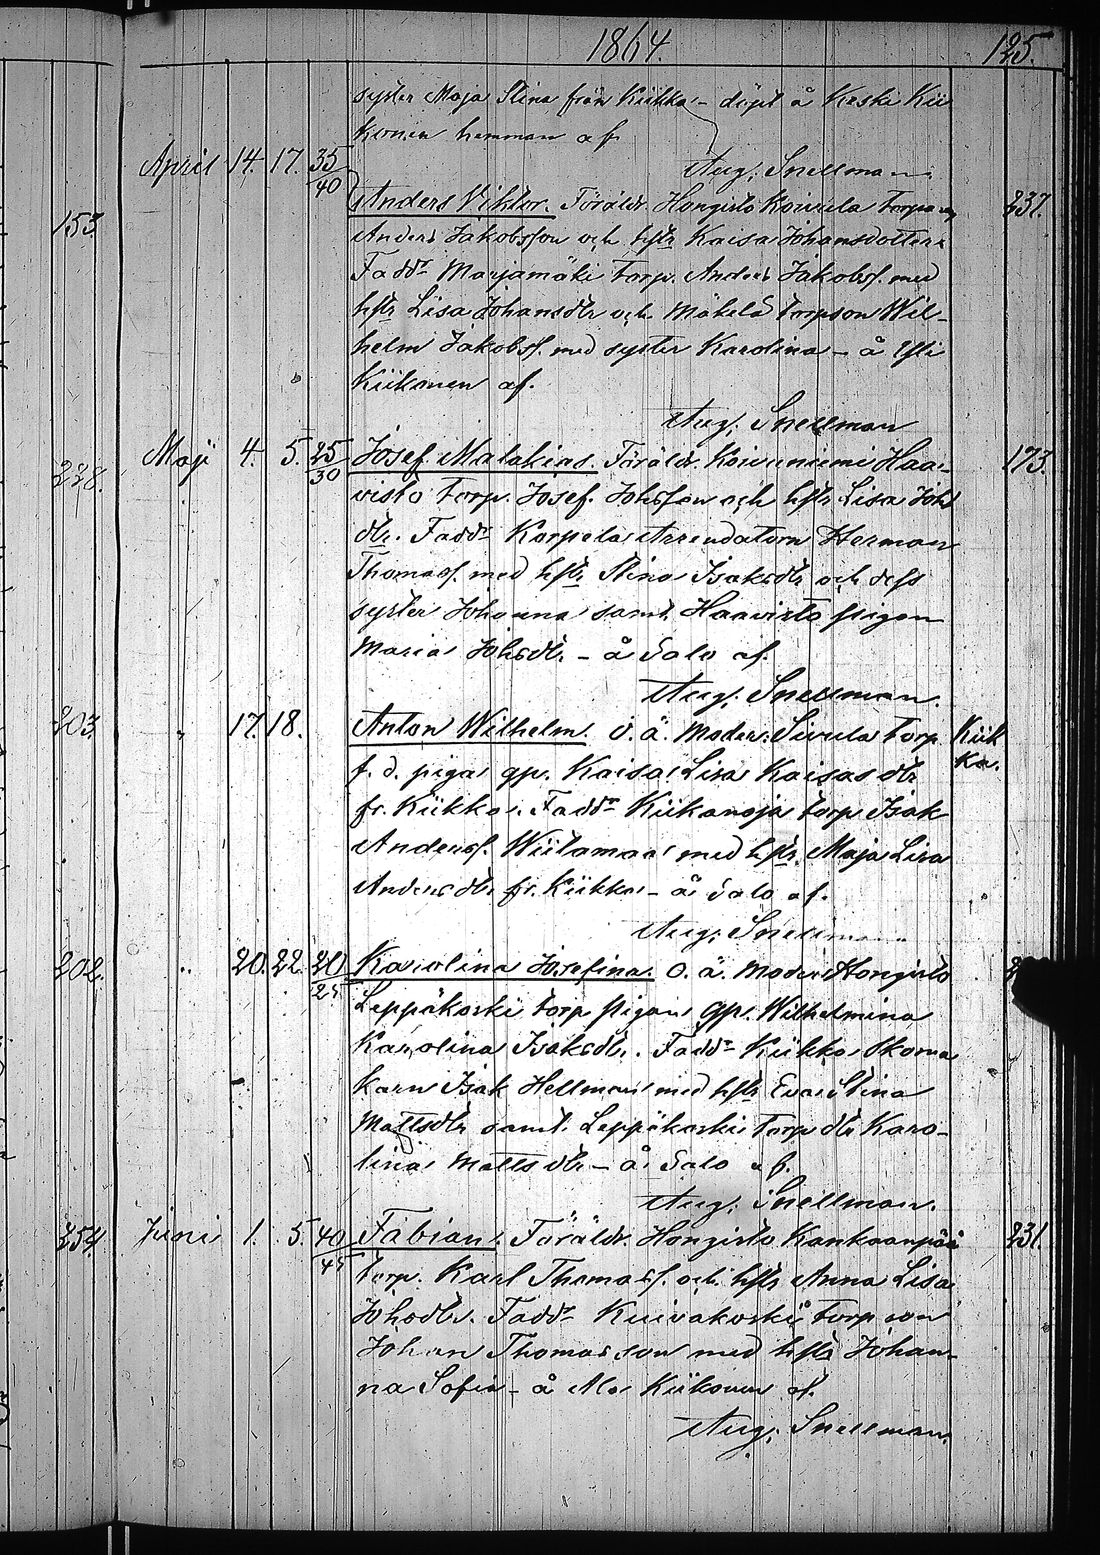 1864. 125.
syster Maja Stina från Kiikka - döpt å Keski Kii
konen hemman af
Aug. Snellman.
April 14. 17. 35/40 Anders Viktor. Föräldr. Hongisto Koivula Torp. 237.
153. Anders Jakobsson och hstr Kaisa Johansdotter.
Faddr Marjamäki Torp. Anders Jakobss. med
hstr Lisa Johansdtr och Mäkelä Torpson Wil-
helm Jakobss. med syster Karolina - å Ylli
Kiikonen af.
Aug. Snellman
228. Maji 4. 5. 25/30 Josef Malakias. Föräldr. Koivuniemi Haa- 173.
visto Torp. Josef Johsson och hstr Lisa Joh
dtr. Faddr Korpela Arrendatorn Herman
Thomass. med hstr Stina Isaksdtr och dess
syster Johanna samt Haavisto pigan
Maria Johsdtr - å Salo af.
Aug. Snellman.
203. " 17. 18. Anton Wilhelm. O. ä. Moder: Sivula Torp Kiik
f. d. piga gp. Kaisa Lisa Kaisas dtr ka.
fr. Kiikka. Faddr Kiikanoja Torp Isak
Anderss. Wiitamaa med hstr. Maja Lisa
Andersdtr fr. Kiikka - å Salo af.
Aug. Snellman
202. " 20. 22. 20/25 Karolina Josefina. O. ä. Moder Hongisto 2
Leppäkoski Torp pigan gp. Wilhelmina
Karolina Isaksdtr. Faddr Kiikka Skoma
karn Isak Hellman med hstr Eva Stina
Mattsdtr samt Leppäkoski Torp dtr Karo-
lina Mattsdtr - å Salo af.
Aug. Snellman.
254. Juni 1. 5. 40/45 Fabian. Föräldr. Hongisto Kankaanpää 231.
Torp. Karl Thomass. och hstr Anna Lisa
Johsdtr. Faddr Kuivakoski Torp son
Johan Thomasson med hstr Johan-
na Sofia - å Ala Kiikonen af.
Aug. Snellman.